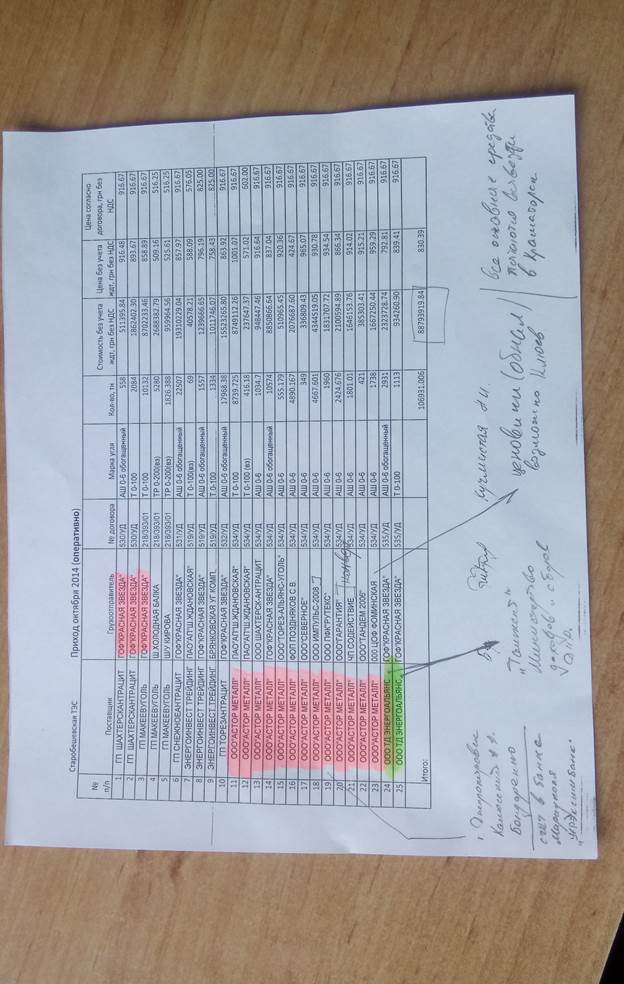 Старобешевская ТЭС
Приход октября 2014 (оперативно)
№ п/п Поставщик Грузоотправитель № договора Марка угля Кол-во, тн Стоимость без учета ждт, грн без НДС Цена без учета ждт, грн без НДС Цена согласно договора, грн без НДС
1 ГП ШАХТЕРСКАНТРАЦИТ ГОФ"КРАСНАЯ ЗВЕЗДА" 530/УД АШ 0-6 обогащенный 558 511395.84 916.48 916.67
2 ГП ШАХТЕРСКАНТРАЦИТ ГОФ"КРАСНАЯ ЗВЕЗДА" 530/УД Т 0-100 2084 1862402.30 893.67 916.67
3 ГП МАКЕЕВУГОЛЬ ГОФ"КРАСНАЯ ЗВЕЗДА" 218/393/01 Т 0-100 10132 8702233.46 858.89 916.67
4 ГП МАКЕЕВУГОЛЬ Ш.ХОЛОДНАЯ БАЛКА 218/393/01 ТР 0-200(вз) 5280 2688382.79 509.16 516.25
5 ГП МАКЕЕВУГОЛЬ Ш/У КИРОВА 218/393/01 ТР 0-200(вз) 1826.388 959964.56 525.61 516.25
6 ГП СНЕЖНОЕАНТРАЦИТ ГОФ"КРАСНАЯ ЗВЕЗДА" 531/УД АШ 0-6 обогащенный 22507 19310229.04 857.97 916.67
7 ЭНЕРГОИНВЕСТ ТРЕЙДИНГ ПАО"АПШ.ЖДАНОВСКАЯ" 519/УД Т 0-100(вз) 69 40578.21 588.09 576.05
8 ЭНЕРГОИНВЕСТ ТРЕЙДИНГ ГОФ"КРАСНАЯ ЗВЕЗДА" 519/УД АШ 0-6 обогащенный 1557 1239666.65 796.19 825.00
9 ЭНЕРГОИНВЕСТ ТРЕЙДИНГ БРЯНКОВСКАЯ УГ.КОМП. 519/УД Т 0-100 1334 1011746.07 758.43 825.00
10 ГП ТОРЕЗАНТРАЦИТ ГОФ"КРАСНАЯ ЗВЕЗДА" 532/УД АШ 0-6 обогащенный 17968.38 15523265.80 863.92 916.67
11 ООО"АСТОР МЕТАЛЛ" ПАО"АПШ.ЖДАНОВСКАЯ" 534/УД Т 0-100 8739.725 8749112.26 1001.07 916.67
12 ООО"АСТОР МЕТАЛЛ" ПАО"АПШ.ЖДАНОВСКАЯ" 534/УД Т 0-100 (вз) 416.18 237647.37 571.02 602.00
13 ООО"АСТОР МЕТАЛЛ" ООО ШАХТЕРСК-АНТРАЦИТ 534/УД АШ 0-6 1034.7 948447.46 916.64 916.67
14 ООО"АСТОР МЕТАЛЛ" ГОФ"КРАСНАЯ ЗВЕЗДА" 534/УД АШ 0-6 10574 8850866.64 837.04 916.67
15 ООО"АСТОР МЕТАЛЛ" ООО"ТОРЕЗ-АЛЬЯНС-УГОЛЬ" 534/УД АШ 0-6 555.179 510965.45 920.36 916.67
16 ООО"АСТОР МЕТАЛЛ" ФОП ПОЗДНЯКОВ С.В. 534/УД АШ 0-6 4890.167 2076687.60 424.67 916.67
17 ООО"АСТОР МЕТАЛЛ" ООО"СЕВЕРНОЕ" 534/УД АШ 0-6 349 336809.43 965.07 916.67
18 ООО"АСТОР МЕТАЛЛ" ООО ИМПУЛЬС-2008 534/УД АШ 0-6 4667.601 4344519.05 930.78 916.67
19 ООО"АСТОР МЕТАЛЛ" ООО ПФК"РУТЕКС" 534/УД АШ 0-6 1960 1831707.72 934.54 916.67
20 ООО"АСТОР МЕТАЛЛ" ООО"ГАРАНТИЯ" 534/УД АШ 0-6 2424.676 2100594.89 866.34 916.67
21 ООО"АСТОР МЕТАЛЛ" ЧП СОДЕЙСТВИЕ 534/УД АШ 0-6 1801.01 1646153.76 914.02 916.67
22 ООО"АСТОР МЕТАЛЛ" ООО"ТАНДЕМ 2006" 534/УД АШ 0-6 421 385303.41 915.21 916.67
23 ООО"АСТОР МЕТАЛЛ" ООО ЦОФ ФОМИНСКАЯ 534/УД АШ 0-6 1738 1667250.44 959.29 916.67
24 ООО ТД ЭНЕРГОАЛЬЯНС ГОФ"КРАСНАЯ ЗВЕЗДА" 535/УД АШ 0-6 обогащенный 2931 2323728.74 792.81 916.67
25 ООО ТД ЭНЕРГОАЛЬЯНС ГОФ"КРАСНАЯ ЗВЕЗДА" 535/УД Т 0-100 1113 934260.90 839.41 916.67
Итого: 106931.006 88793919.84 830.39
Бондаренко
счет в банке
Мариуполя
Министерство
доходов и сборов
ценовики (обнал)
возможно Клюев
все основные средства
пытаются вывезти
в Краматорск